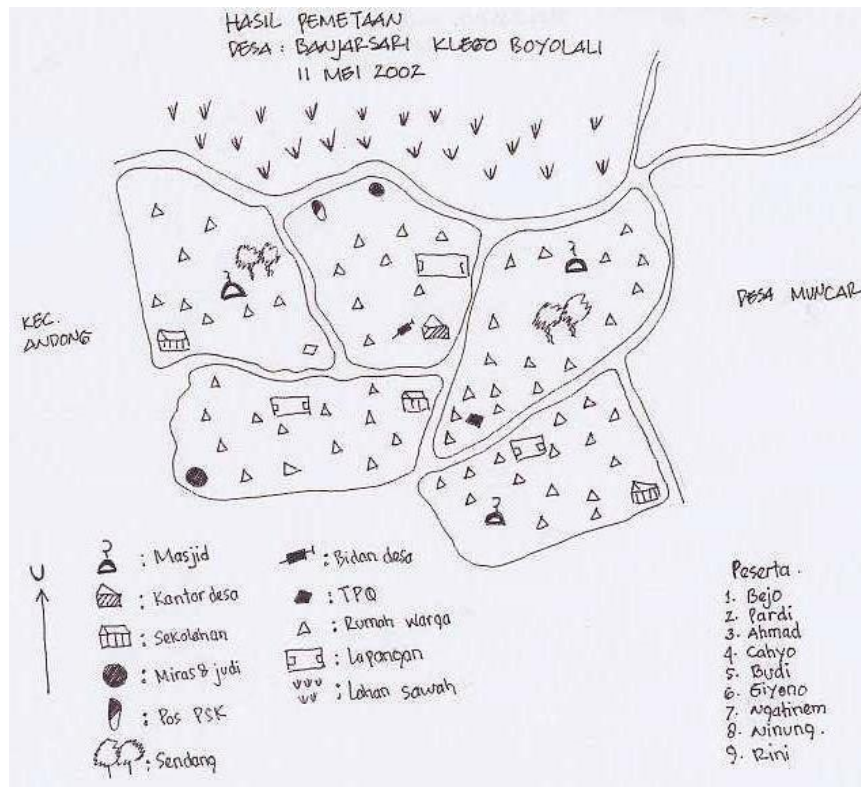 HASIL PEMETAAN
DESA : BANJARSARI KLEGO BOYOLALI
11 MEI 2002
KEC.
ANDONG
DESA MUNCAR
U
: Masjid
: Kantor desa
: Sekolahan
: Miras & judi
: Pos PSK
: Sendang
: Bidan desa
: TPQ
: Rumah warga
: Lapangan
: Lahan sawah
Peserta .
1. Bejo
2. Pardi
3. Ahmad
4. Cahyo
5. Budi
6. Giyono
7. Ngatinem
8. Ninung.
9. Rini